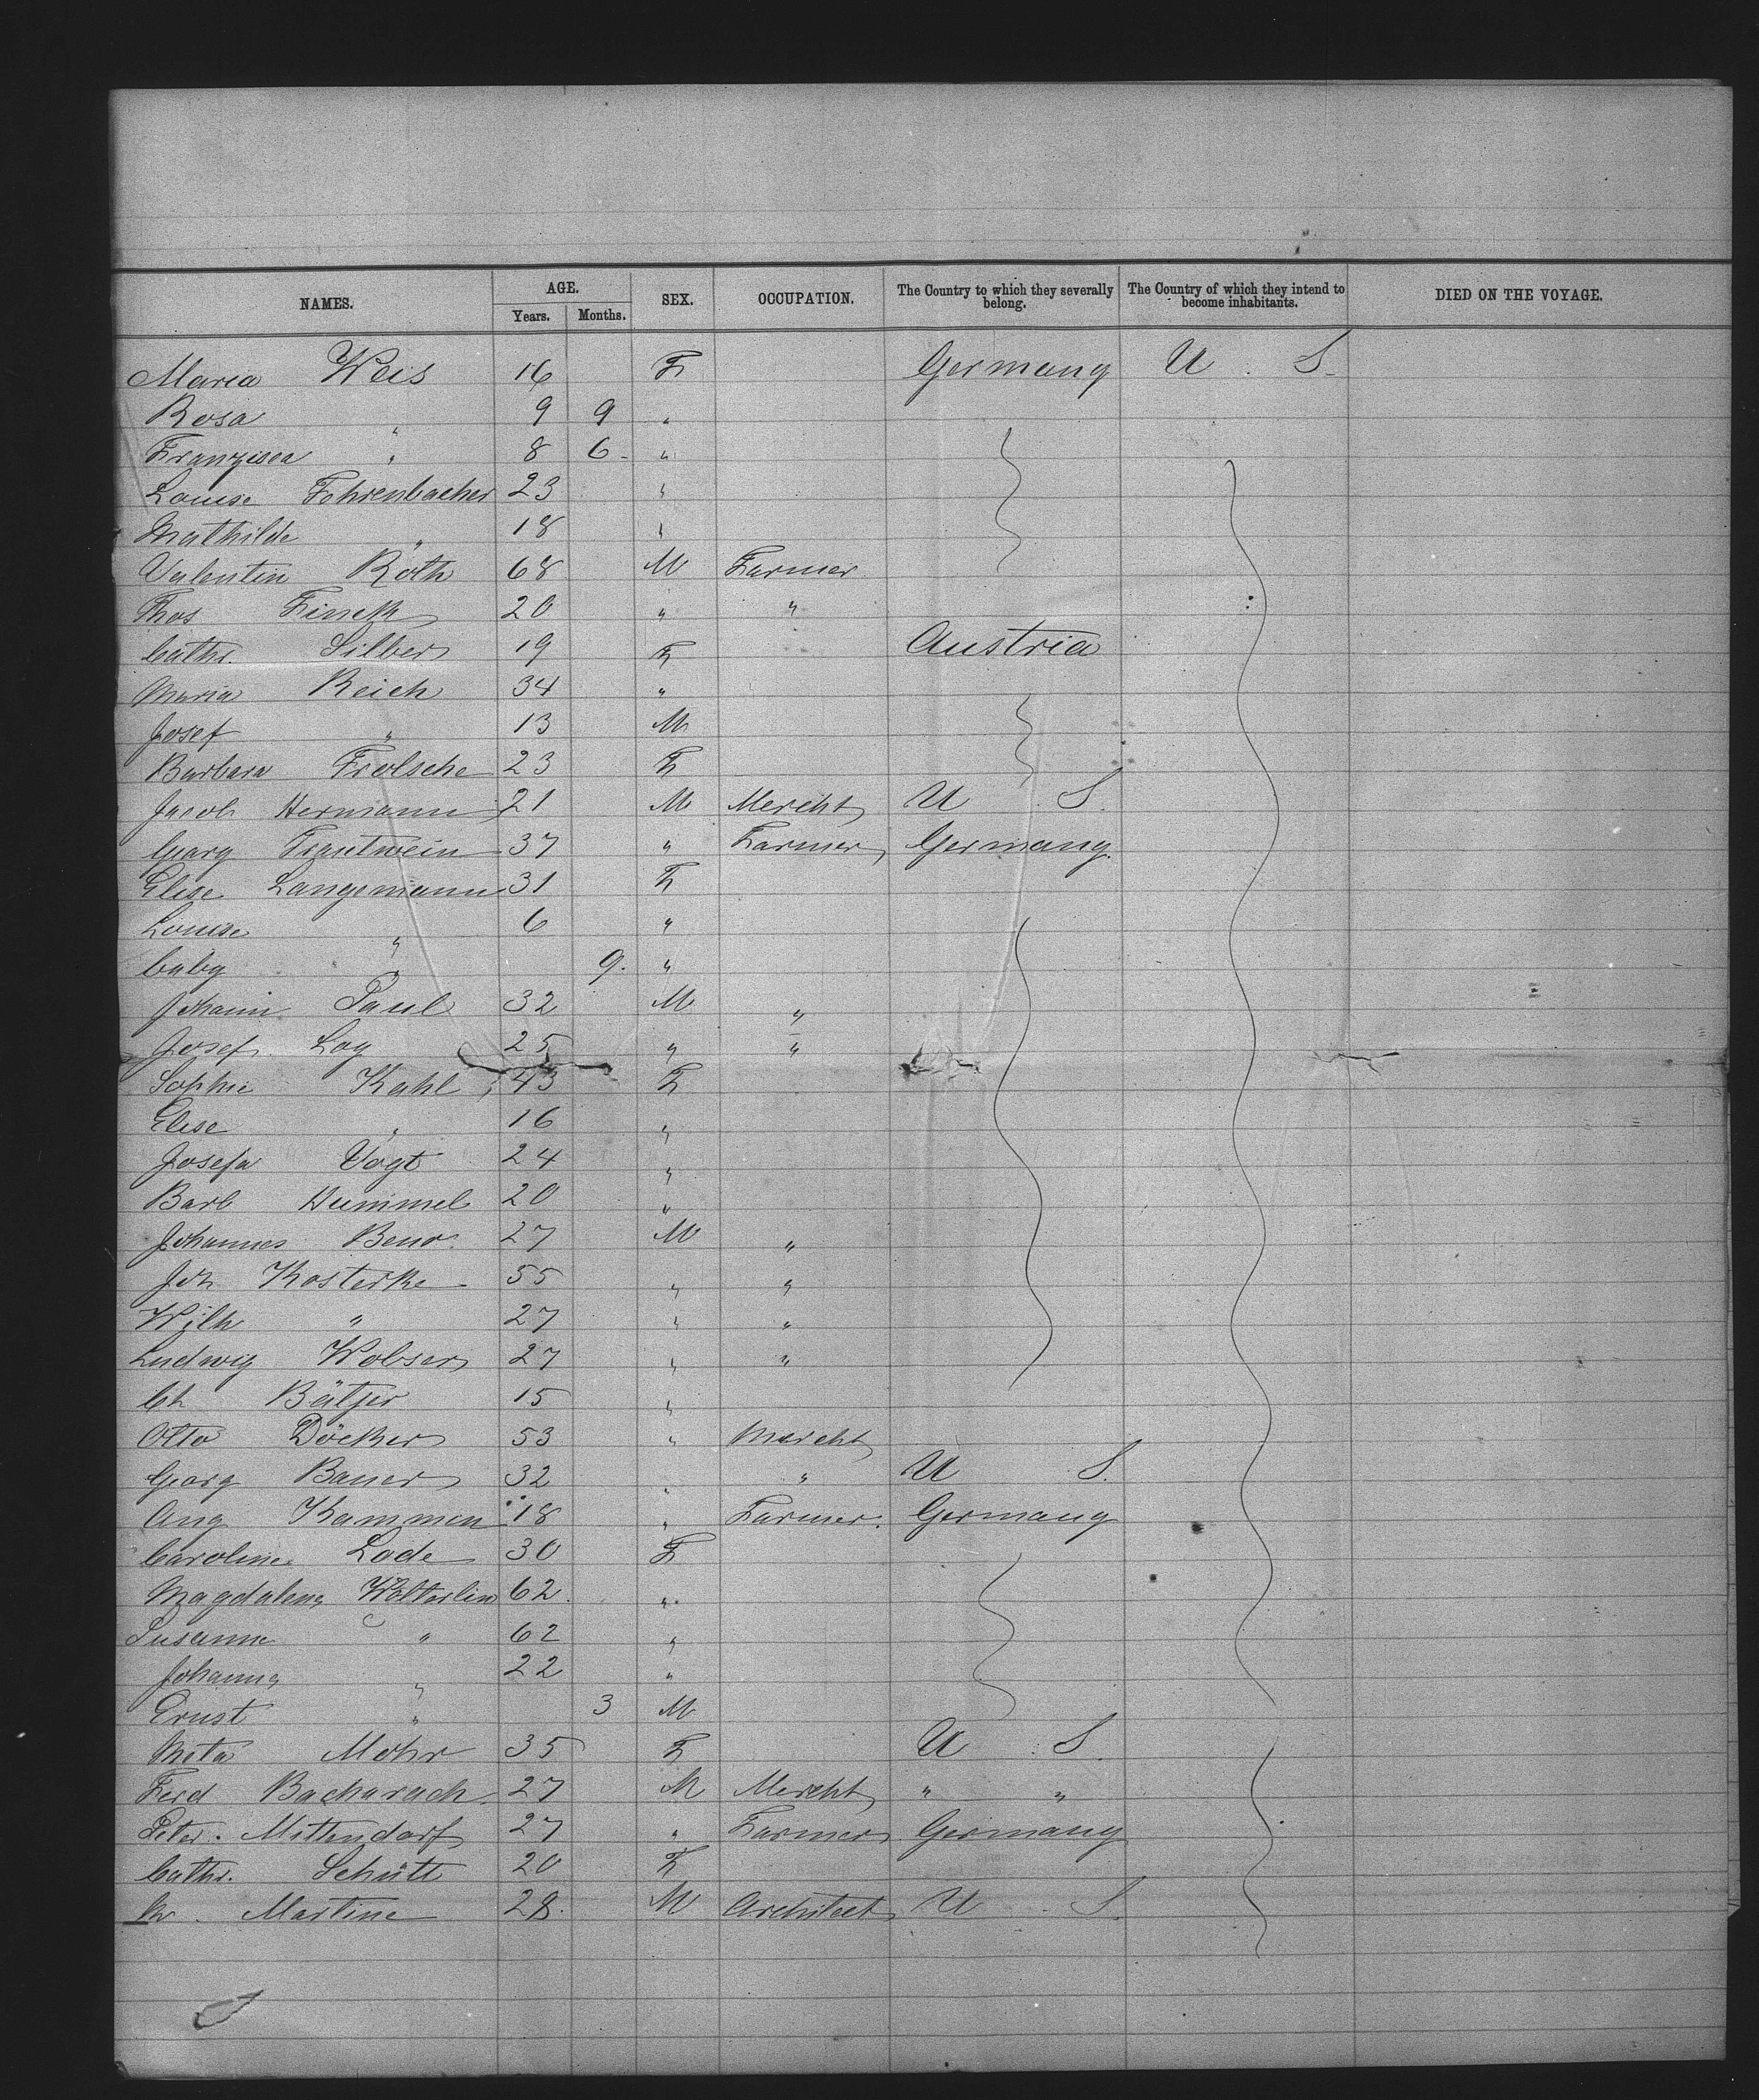 NAMES. AGE. SEX. OCCUPATION. The Country to which they severally belong. The Country of which they intend to become inhabitants. DIED ON THE VOYAGE.
Years. Months.
Maria Weis 16 F Germany U. S.
Rosa " 9 9 "
Franzisca " 8 6 "
Louise Fohrenbacher 23 "
Mathilde " 18 "
Valentin Roth 68 M Farmer
Thos Finck 20 " "
Cathr. Silber 19 F Austria
Maria Reich 34 "
Josef " 13 M
Barbara Frolsche 23 F
Jacob Hermann 21 M Mercht U S.
Georg Trautwein 37 " Farmer Germany
Elise Langemann 31 F
Louise " 6 "
baby " 9. "
Johann Paul 32 M "
Josef Loy 25 " "
Sophie Kahl 43 F
Elise " 16 "
Josefa Vogt 24 "
Barb Hummel 20 "
Johannes 27 M "
Joh Kosterke 55 " "
Wilh " 27 " "
Ludwig Wobser 27 " "
Ch Bätjer 15 "
Otto Döcker 53 " Mercht
Georg Bauer 32 " " U S.
Aug Kammen 18 " Farmer. Germany
Caroline Lode 30 F
Magdalena Wolterlin 62 "
Susanne " 62 "
Johanna " 22 "
Ernst " 3 M
Meta Mohr 35 F U S.
Ferd Bacharach 27 M Mercht " "
Peter Mittendorf 27 " Farmer Germany
Cathr. Schütt 20 F
Martine 28. M Architect U. S.